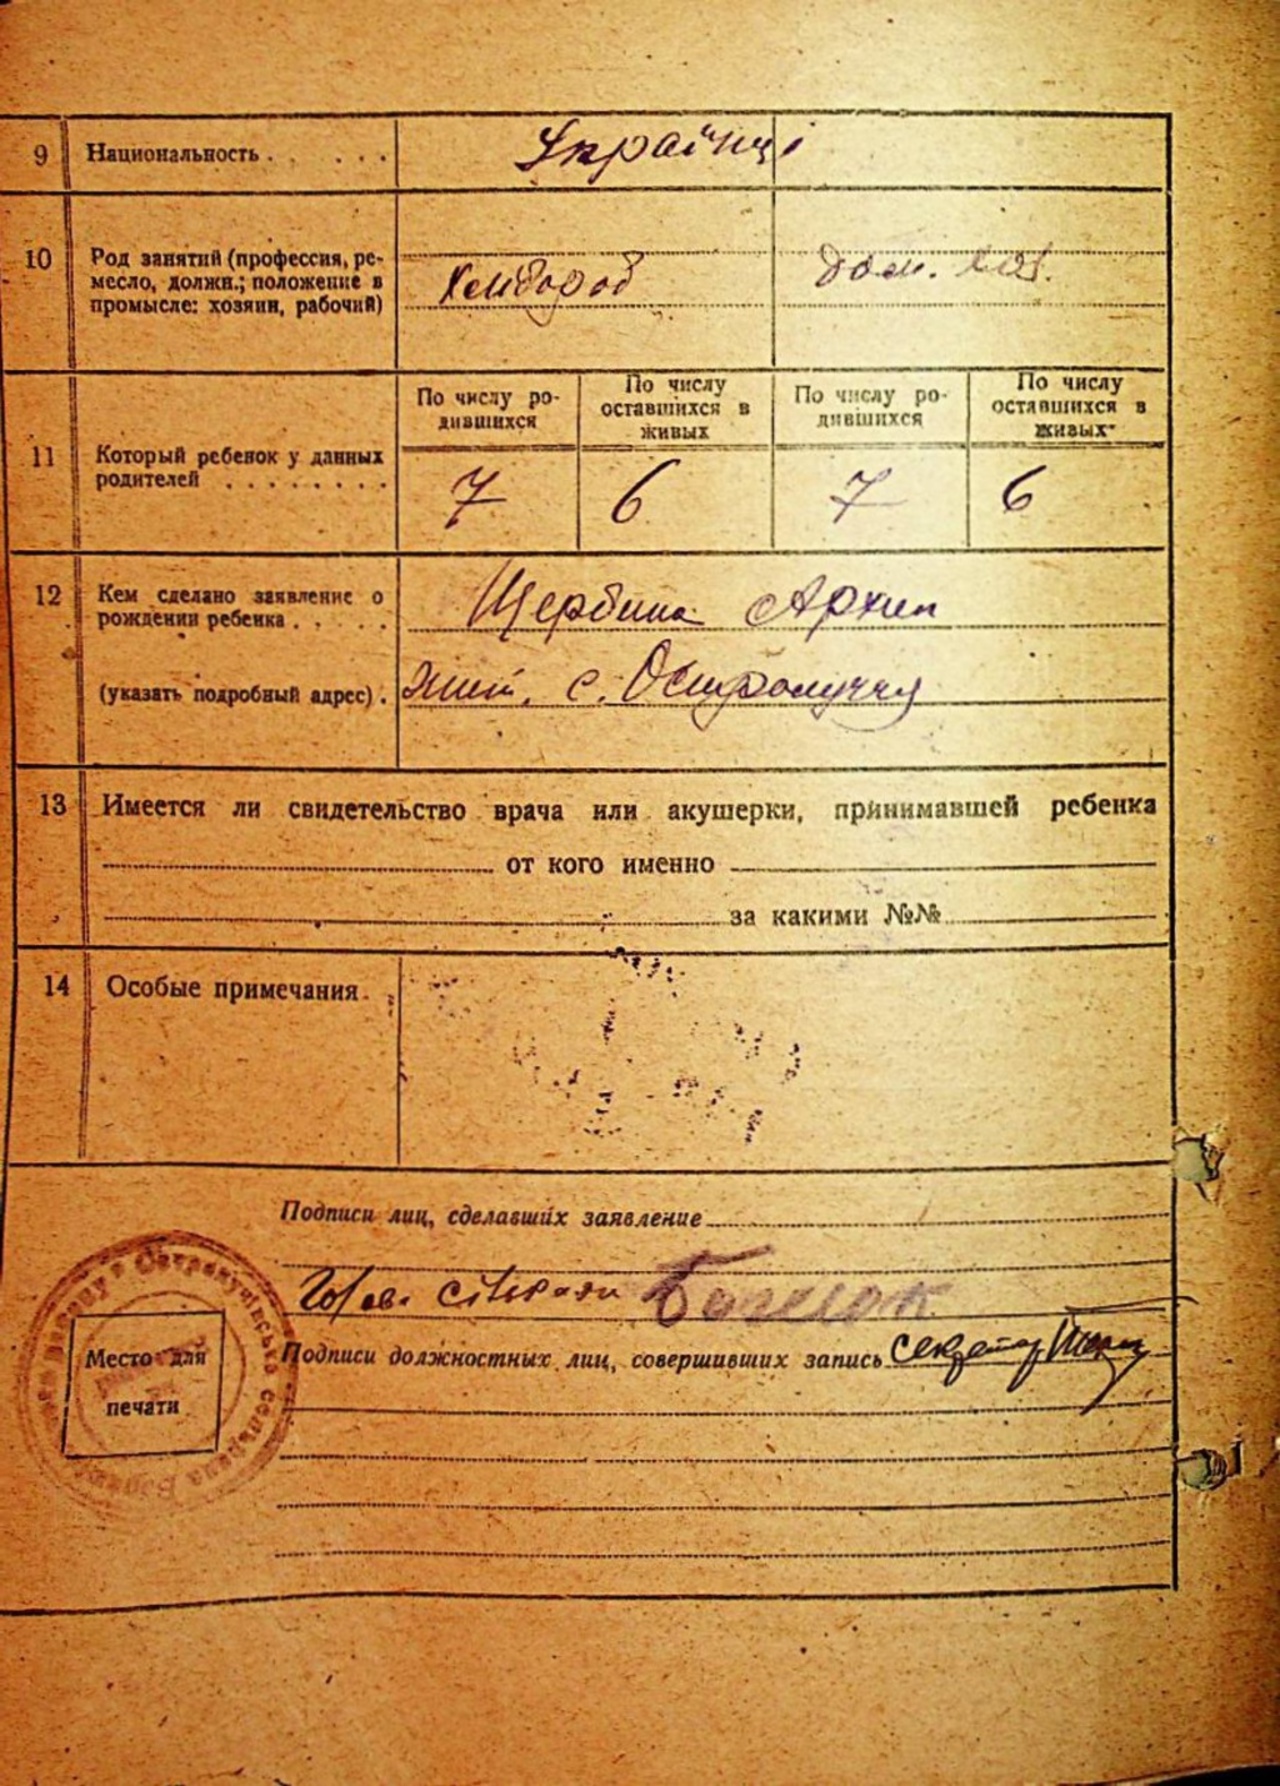 9 Национальность . . . . . Українці
10 Род занятий (профессия, ре-
месло, должн.; положение в
промысле: хозяин, рабочий)
дом. хоз.
11 Который ребенок у данных
родителей . . . . . . . .
По числу ро-
дившихся
По числу
оставшихся в
живых
По числу ро-
дившихся
По числу
оставшихся в
живых
7 6 7 6
12 Кем сделано заявление о
рождении ребенка . . . . . Щербина Архип
(указать подробный адрес) . жит. с. Остролуччя
13 Имеется ли свидетельство врача или акушерки, принимавшей ребенка
от кого именно
за какими №№
14 Особые примечания.
Подписи лиц, сделавших заявление
Голов. с/Ради
Подписи должностных лиц, совершивших запись секретар
Место для
печати